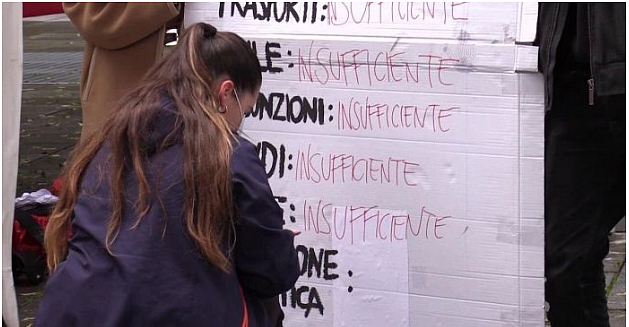 TRASPORTI: INSUFFICIENTE
ILE: INSUFFICIENTE
UNZIONI: INSUFFICIENTE
NDI: INSUFFICIENTE
: INSUFFICIENTE
ONE :
TICA